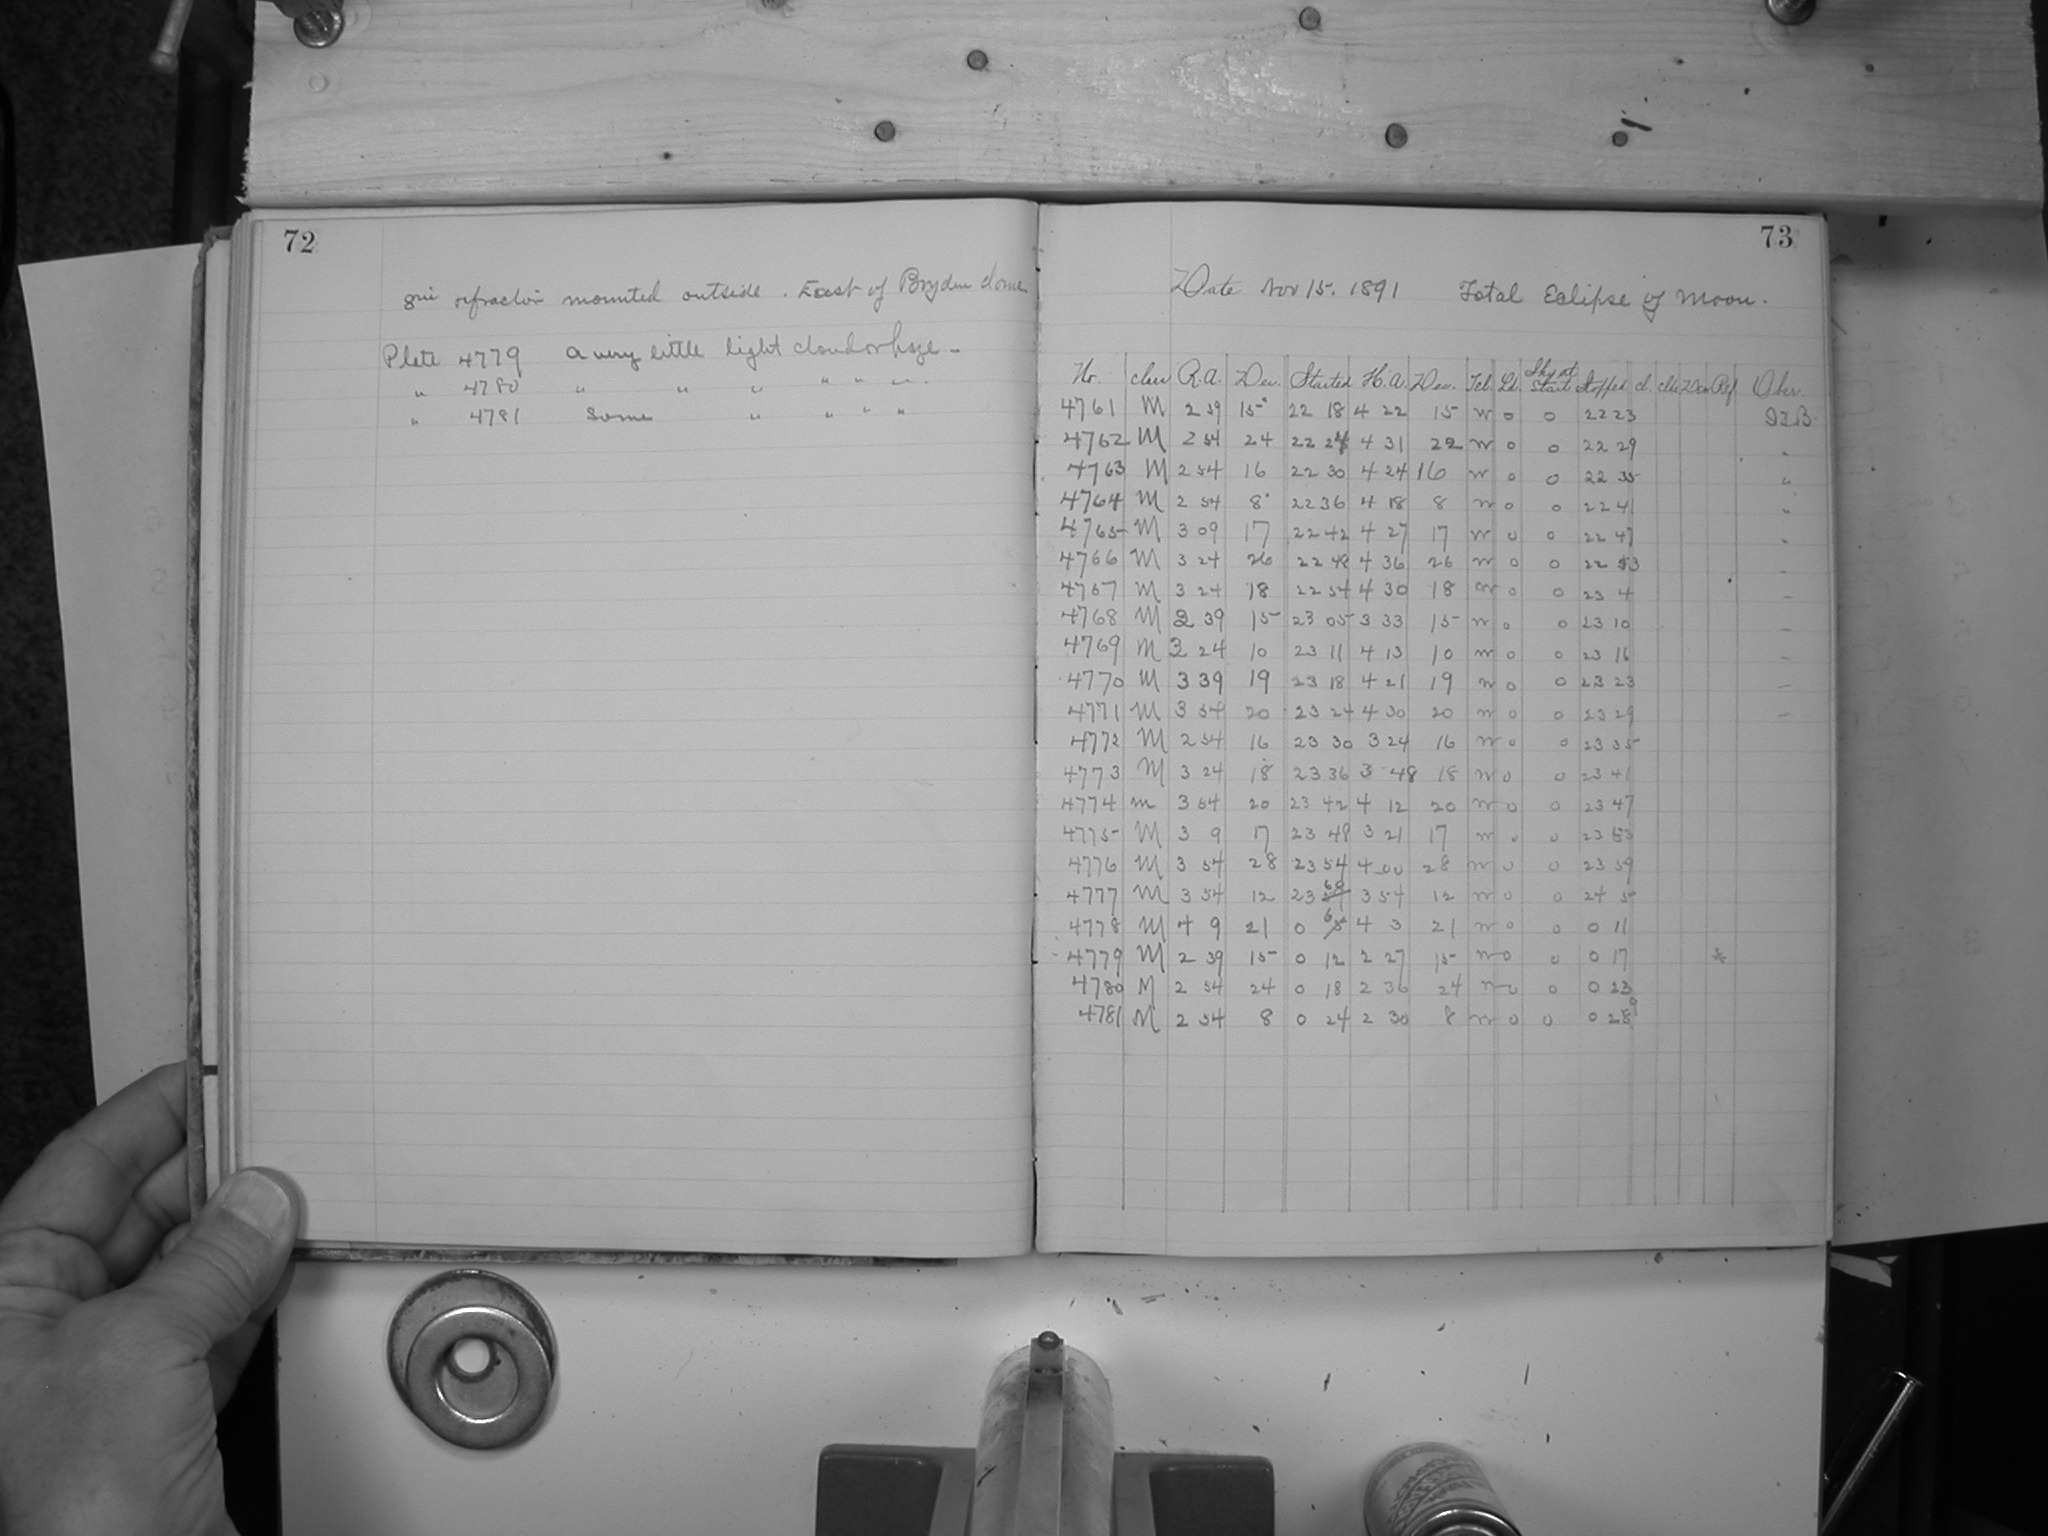 72
8 in refractor mounted outside. East of Boyden dome
Plate 4779 A very little light cloud or haze -
" 4780 " " " " " "
" 4781 Some " " " "
73
Date Nov 15. 1891 Total Eclipse of Moon.
No. class R.A. Dec. Started H.A. Dec. Tel. Ld. Sky at Start Stopped cl. Dev Ref Obsr.
4761 M 2 39 15° 22 18 4 22 15 W 0 0 22 23
4762 M 2 54 24 22 24 4 31 22 W 0 0 22 29 "
4763 M 2 54 16 22 30 4 24 16 W 0 0 22 35 "
4764 M 2 54 8° 22 36 4 18 8 W 0 0 22 41 "
4765 M 3 09 17 22 42 4 27 17 W 0 0 22 47 "
4766 M 3 24 26 22 48 4 36 26 W 0 0 22 53 -
4767 M 3 24 18 22 54 4 30 18 W 0 0 23 4 -
4768 M 2 39 15 23 05 3 33 15 W 0 0 23 10 -
4769 M 3 24 10 23 11 4 13 10 W 0 0 23 16 -
4770 M 3 39 19 23 18 4 21 19 W 0 0 23 23 -
4771 M 3 54 20 23 24 4 30 20 W 0 0 23 29 -
4772 M 2 54 16 23 30 3 24 16 W 0 0 23 35
4773 M 3 24 18 23 36 3 48 18 W 0 0 23 41
4774 M 3 54 20 23 42 4 12 20 W 0 0 23 47
4775 M 3 9 17 23 48 3 21 17 W 0 0 23 53
4776 M 3 54 28 23 54 4 00 28 W 0 0 23 59
4777 M 3 54 12 23 60 3 54 12 W 0 0 24 5
4778 M 4 9 21 0 6 4 3 21 W 0 0 0 11
4779 M 2 39 15 0 12 2 27 15 W 0 0 0 17 *
4780 M 2 54 24 0 18 2 36 24 W 0 0 0 23
4781 M 2 54 8 0 24 2 30 8 W 0 0 0 289